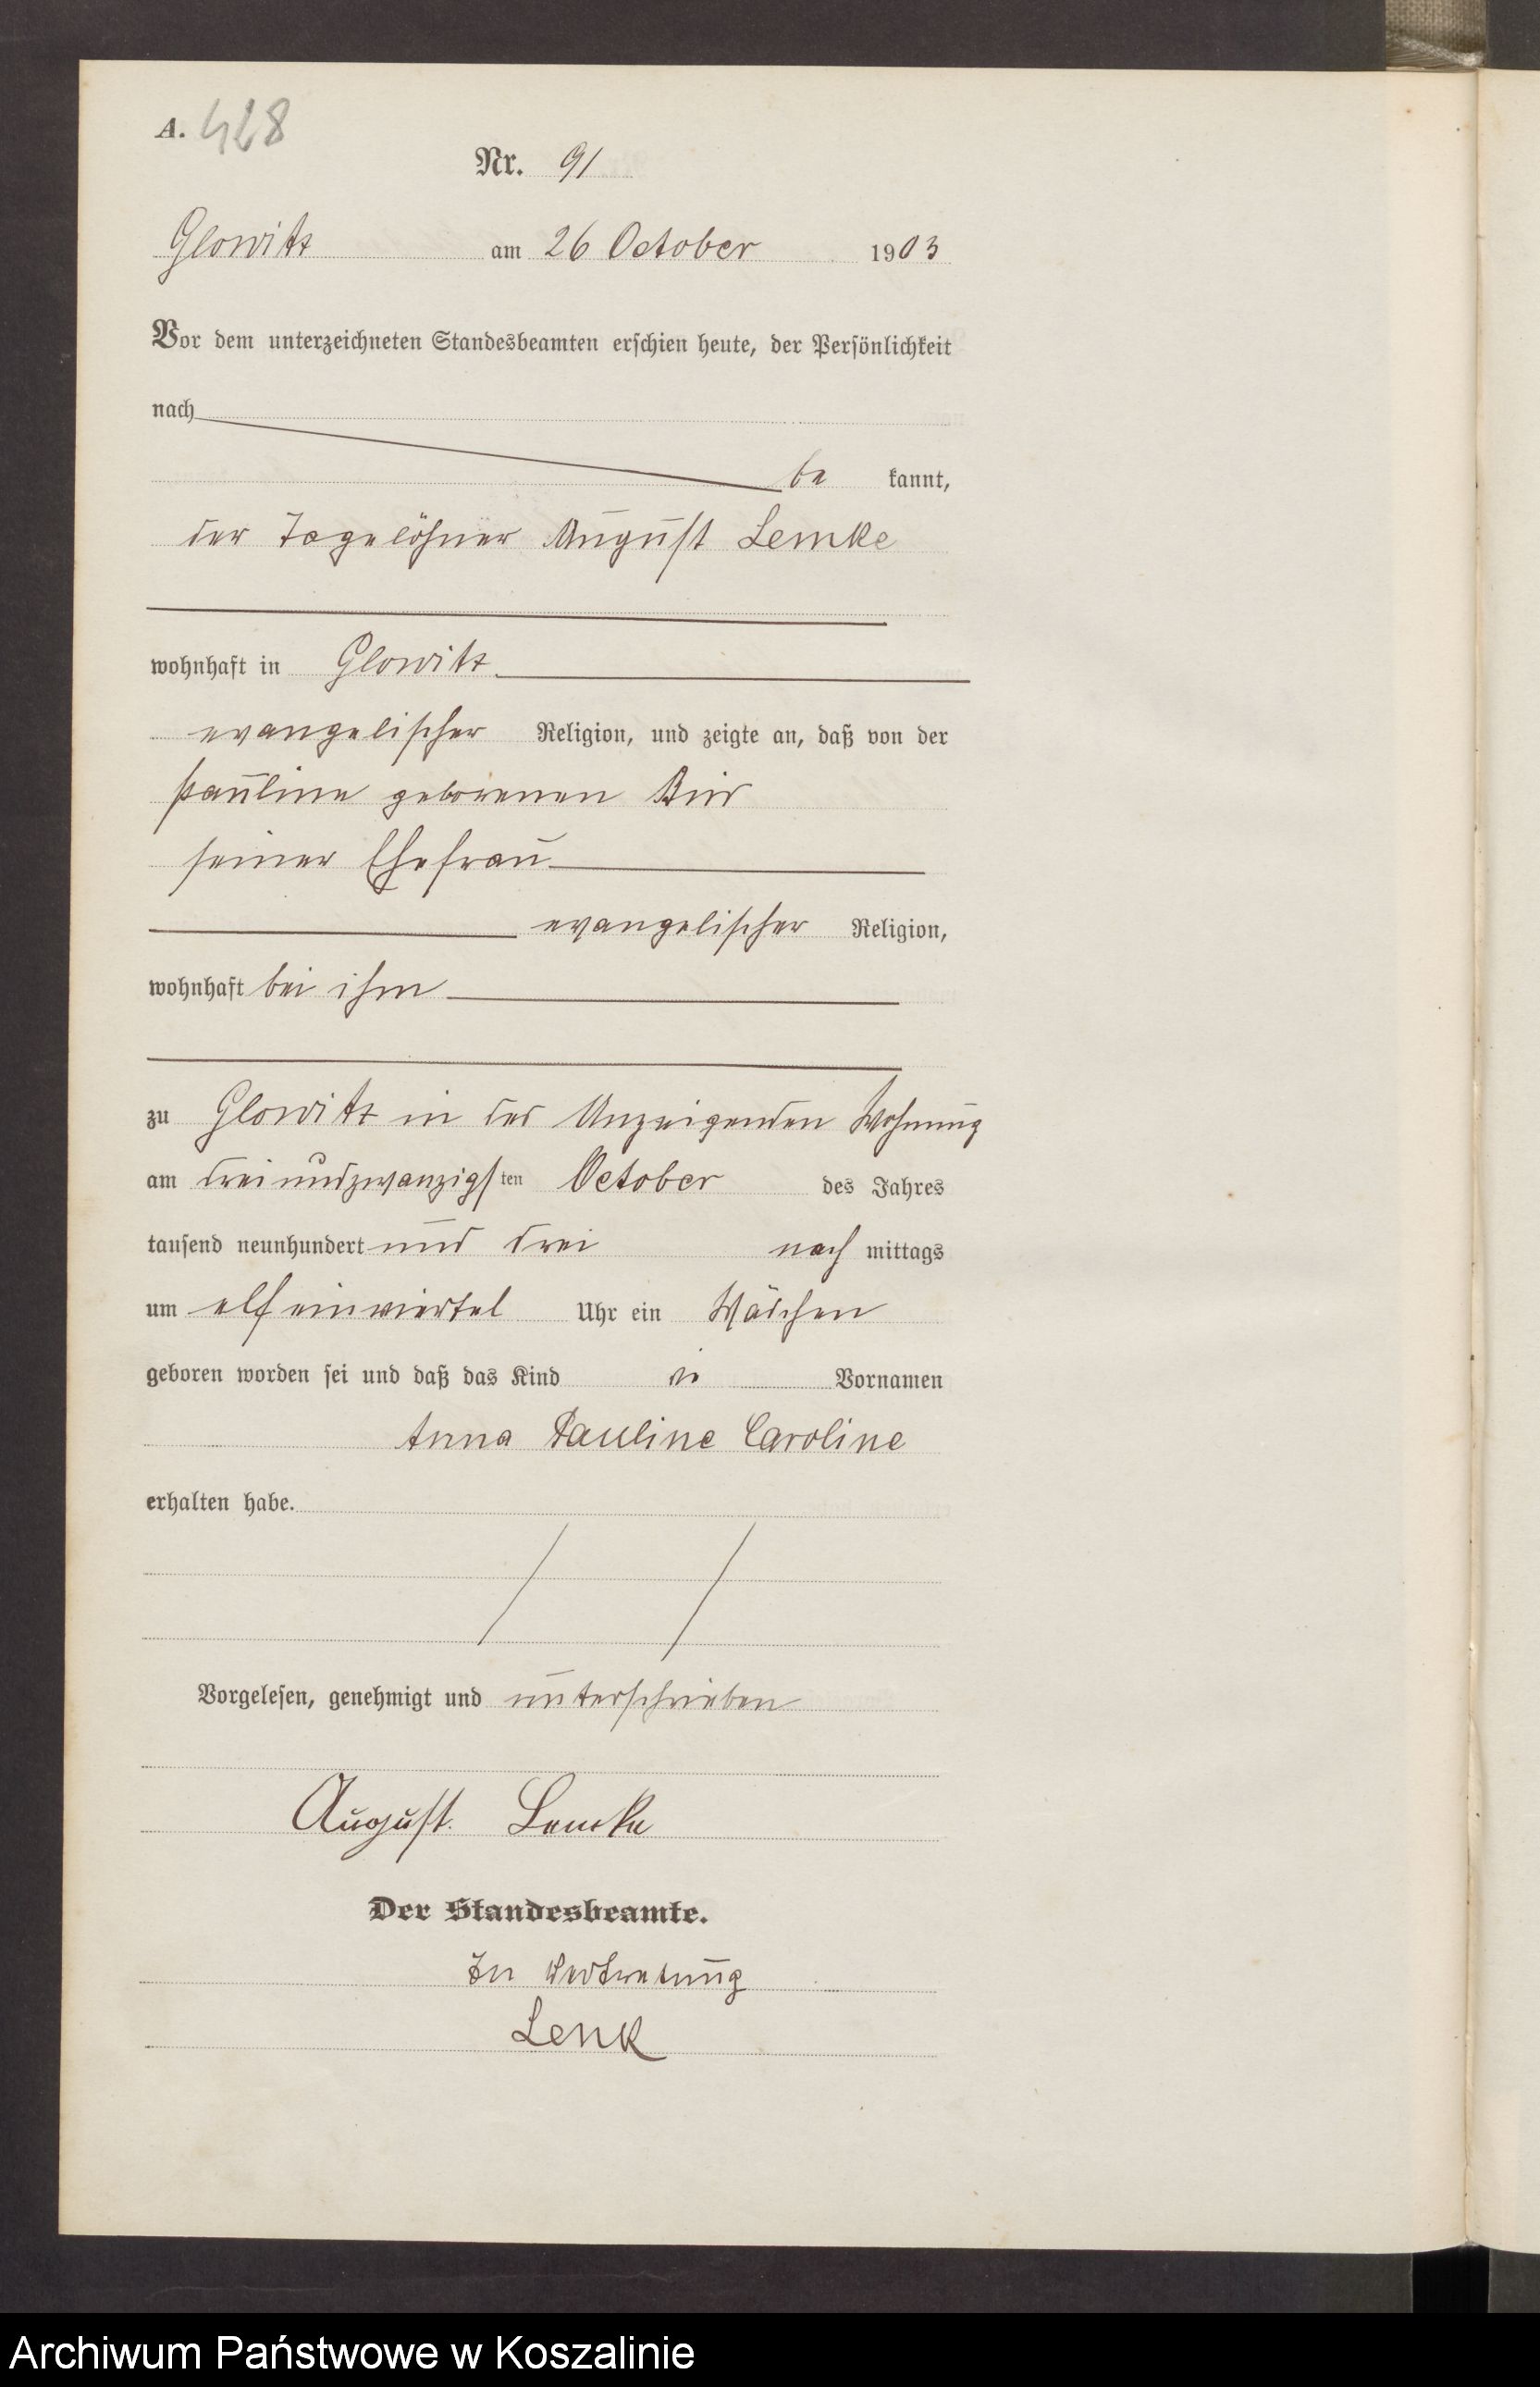 A. 428
Nr. 91
Glowitz am 26 October 1903
Vor dem unterzeichneten Standesbeamten erschien heute, der Persönlichkeit
nach
be kannt,
der Tagelöhner August Lemke
wohnhaft in Glowitz
evangelischer Religion, und zeigte an, daß von der
Pauline geborenen
seiner Ehefrau
evangelischer Religion,
wohnhaft bei ihm
zu Glowitz in des Anzeigenden Wohnung
am dreiundzwanzigsten October des Jahres
tausend neunhundert und drei nach mittags
um elf einviertel Uhr ein Mädchen
geboren worden sei und daß das Kind die Vornamen
Anna Pauline Caroline
erhalten habe.
Vorgelesen, genehmigt und unterschrieben
August Lemke
Der Standesbeamte.
In Vertretung
Lenk
Archiwum Państwowe w Koszalinie